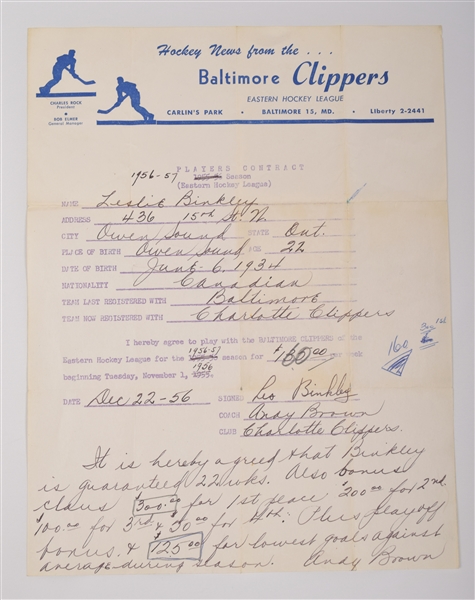 Hockey News from the . . .
Baltimore Clippers
EASTERN HOCKEY LEAGUE
CARLIN'S PARK • BALTIMORE 15, MD. • Liberty 2-2441
CHARLES ROCK
President
•
BOB ELMER
General Manager
PLAYERS CONTRACT
1956-57 Season
(Eastern Hockey League)
NAME Leslie Binkley
ADDRESS 436 15th St. W.
CITY Owen Sound STATE Ont.
PLACE OF BIRTH Owen Sound AGE 22
DATE OF BIRTH June 6, 1934
NATIONALITY Canadian
TEAM LAST REGISTERED WITH Baltimore
TEAM NOW REGISTERED WITH Charlotte Clippers
I hereby agree to play with the BALTIMORE CLIPPERS of the
Eastern Hockey League for the 1956-57 season for $ per week
beginning Tuesday, November 1, 1956
160
DATE Dec 22-56 SIGNED Les Binkley
COACH Andy Brown
CLUB Charlotte Clippers.
It is hereby agreed that Binkley
is guaranteed 22 wks. Also bonus
claus $300.00 for 1st peace $200.00 for 2nd.
$100.00 for 3rd & $50.00 for 4th. Plus playoff
bonus. & $125.00 for lowest goals against
average during season. Andy Brown